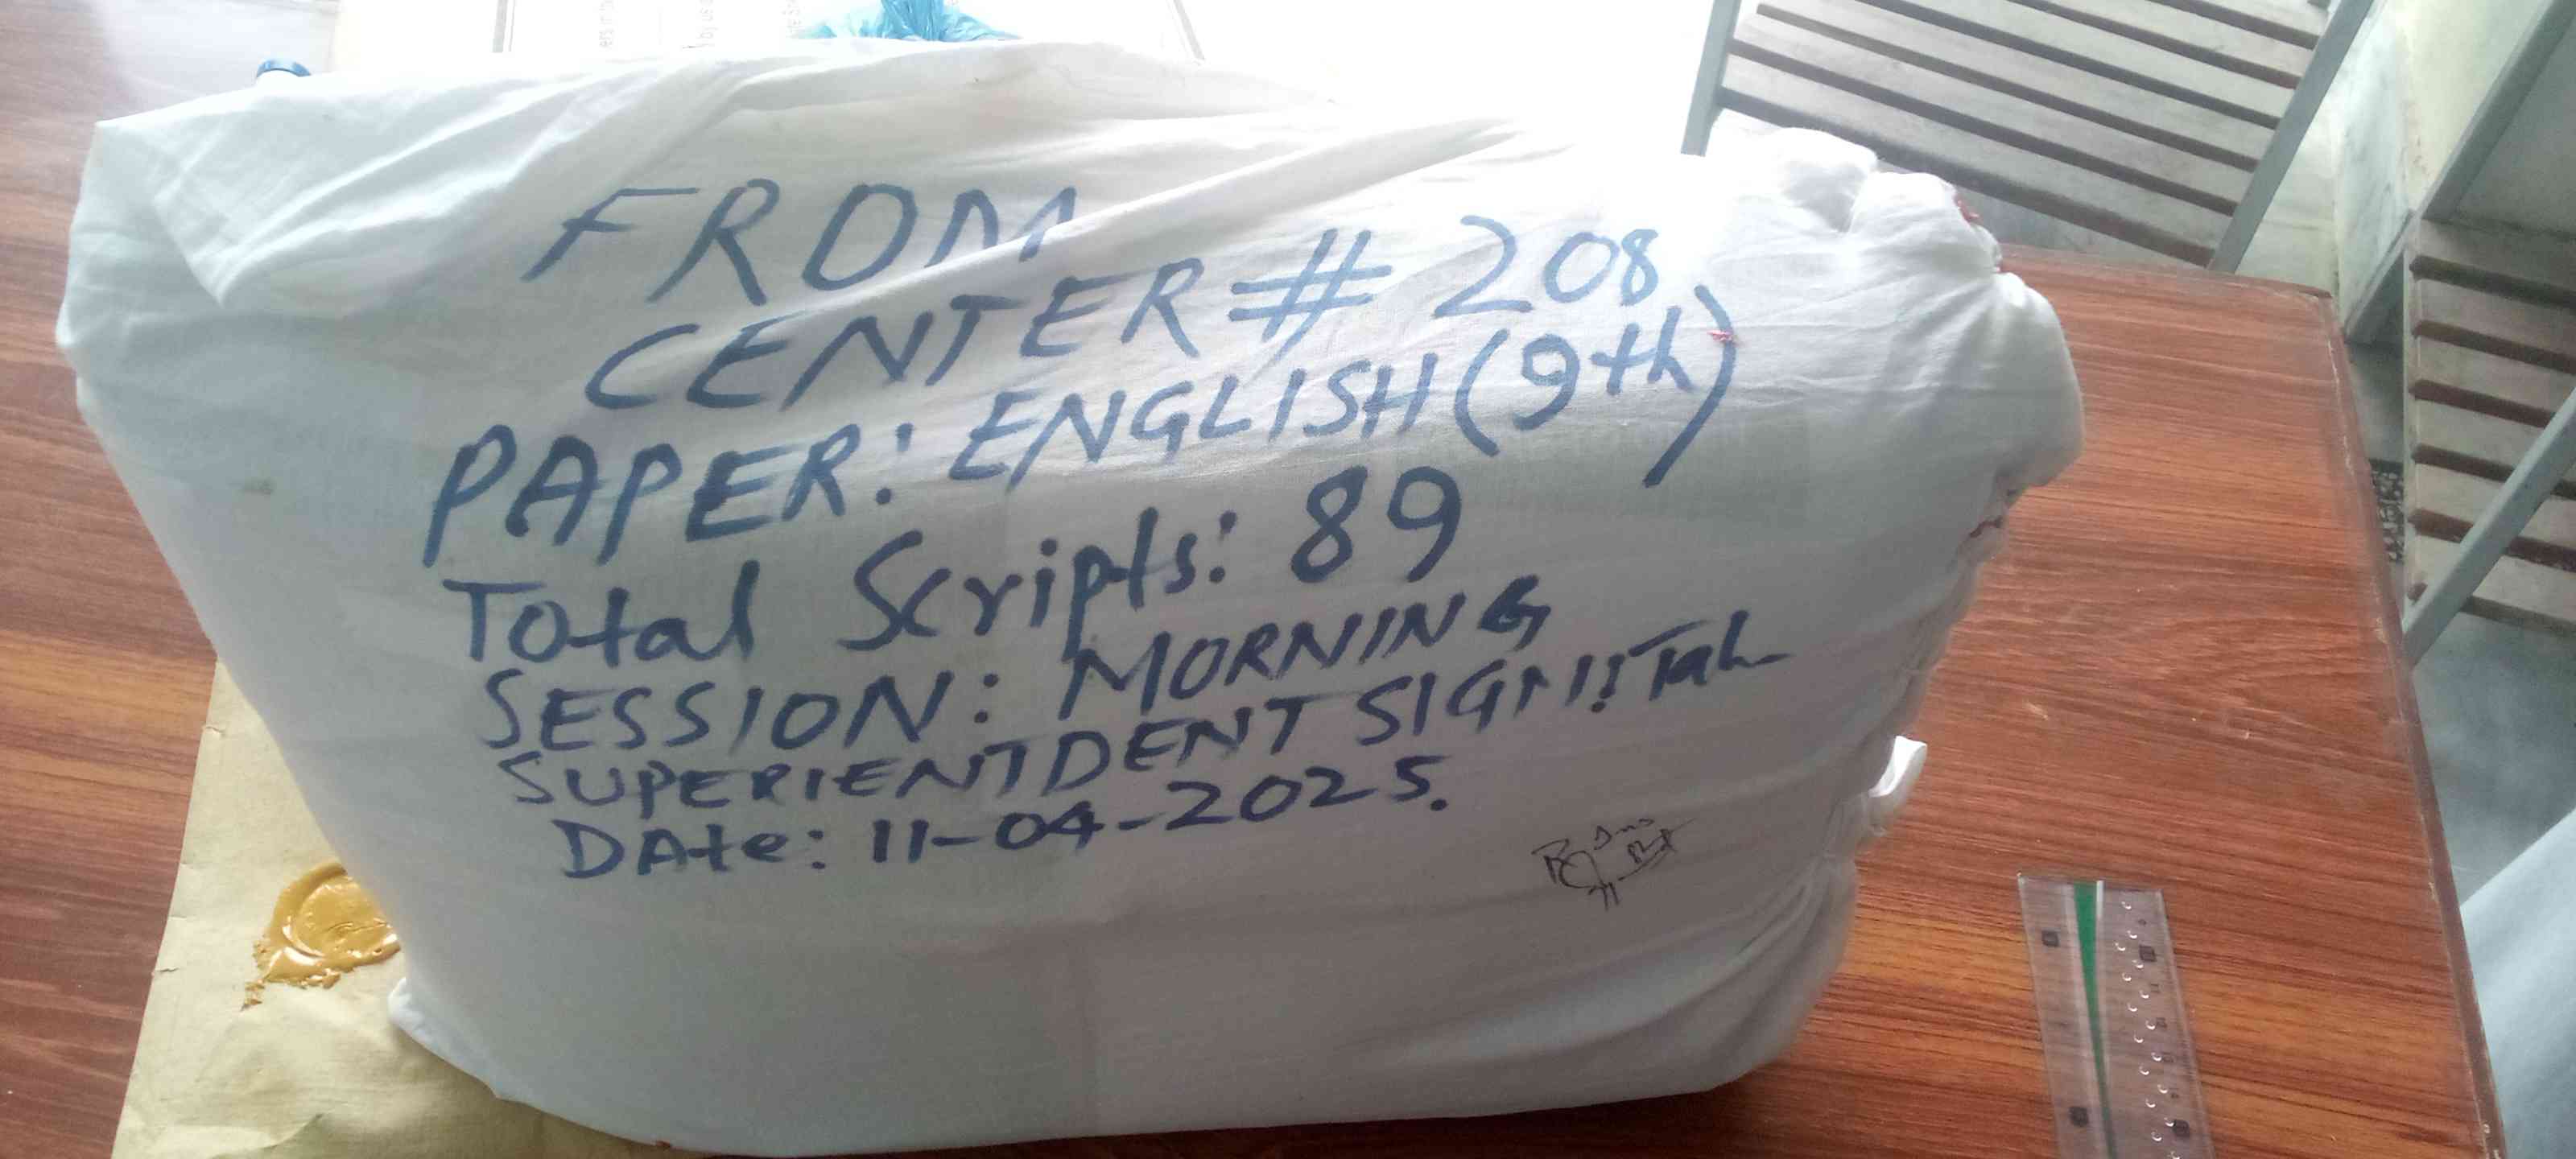 FROM
CENTER # 208
PAPER: ENGLISH (9th)
Total Scripts: 89
SESSION: MORNING
SUPERIENTDENT SIGN:
DAte: 11-04-2025.